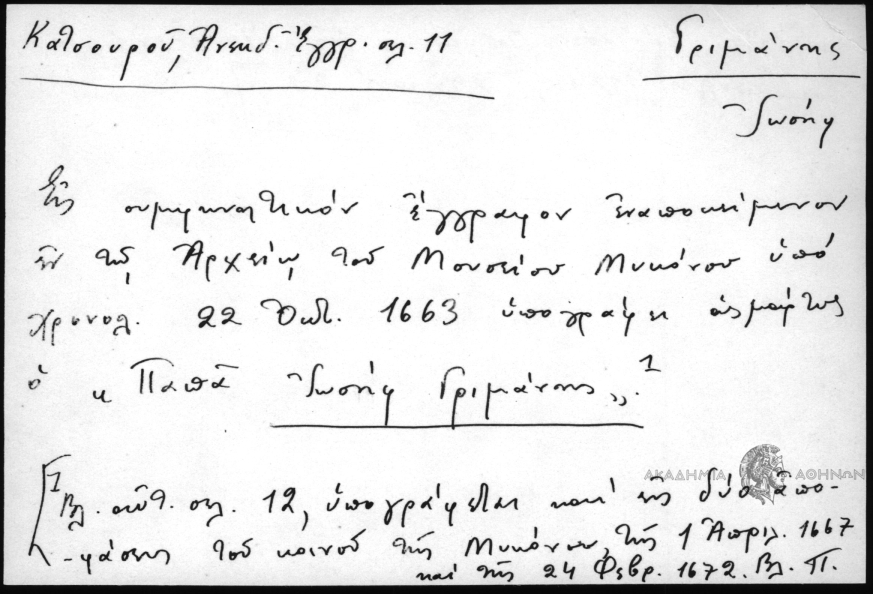 Κατσουροῦ, Ἀνεκδ. Ἔγγρ. σελ. 11
Γριμάνης
Ἰωσήφ
Εἰς συμφωνητικόν ἔγγραφον ἐναποκείμενον
ἐν τῷ Ἀρχείῳ τοῦ Μουσείου Μυκόνου ὑπό
χρονολ. 22 Ὀκτ. 1663 ὑπογράφει ὡς μάρτυς
ὁ « Παπᾶ Ἰωσήφ Γριμάνης». 1
[1 Βλ. αὐτ. σελ. 12, ὑπογράφεται καί εἰς δύο ἀπο-
-φάσεις τοῦ κοινοῦ τῆς Μυκόνου, τῆς 1 Ἀπριλ. 1667
καί τῆς 24 Φεβρ. 1672. Βλ. Π.
ΑΚΑΔΗΜΙΑ ΑΘΗΝΩΝ